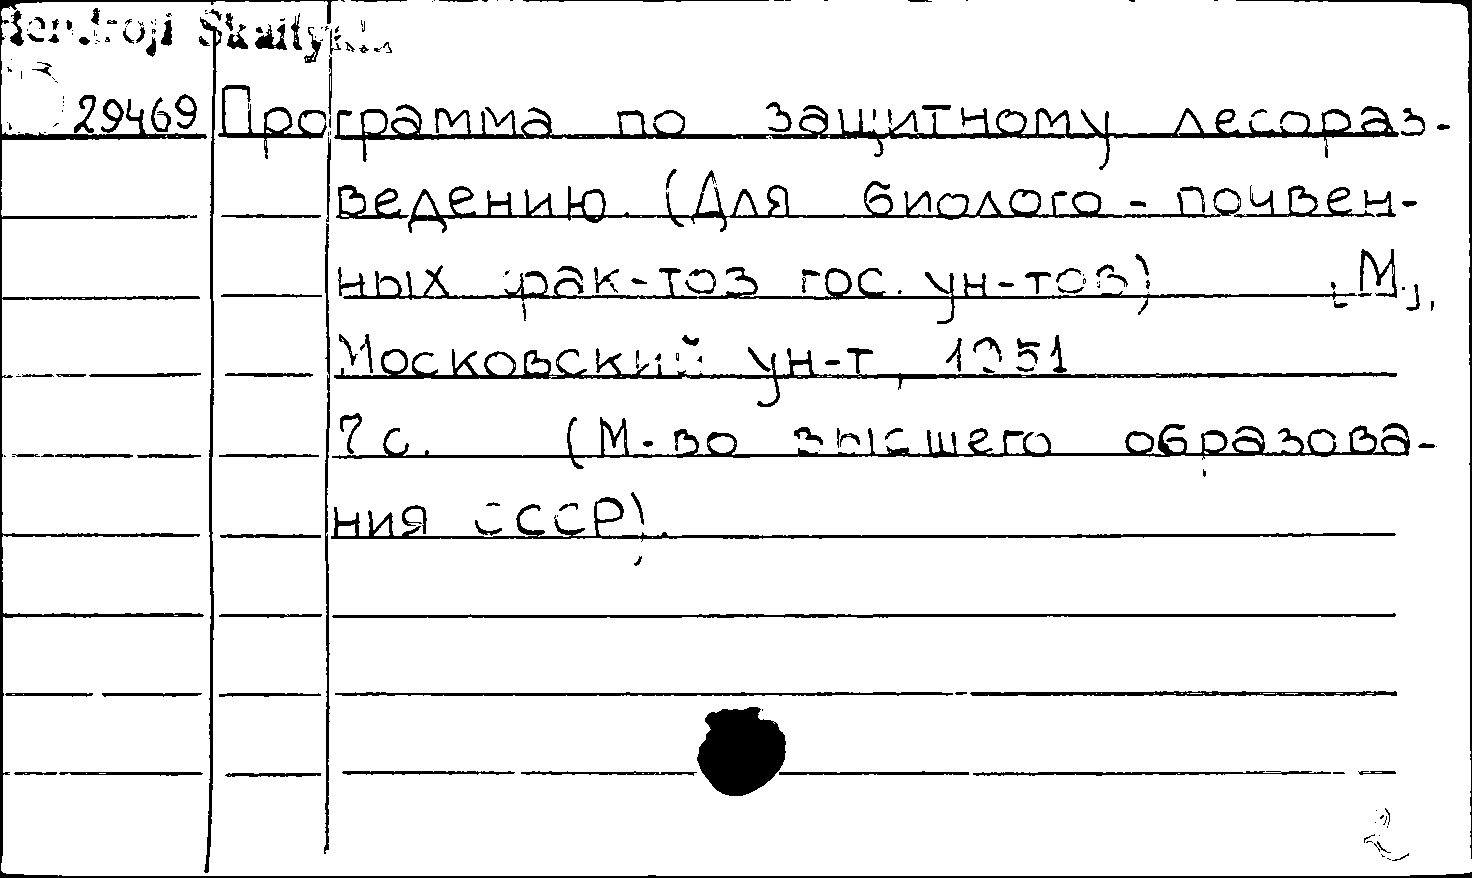 Bendroji Skaityk
29469 Программа по защитному лесораз-
ведению. (Для биолого-почвен-
ных фак-тов гос. ун-тов) [М.],
Московский ун-т, 1951
7 с. (М-во высшего образова-
ния СССР).